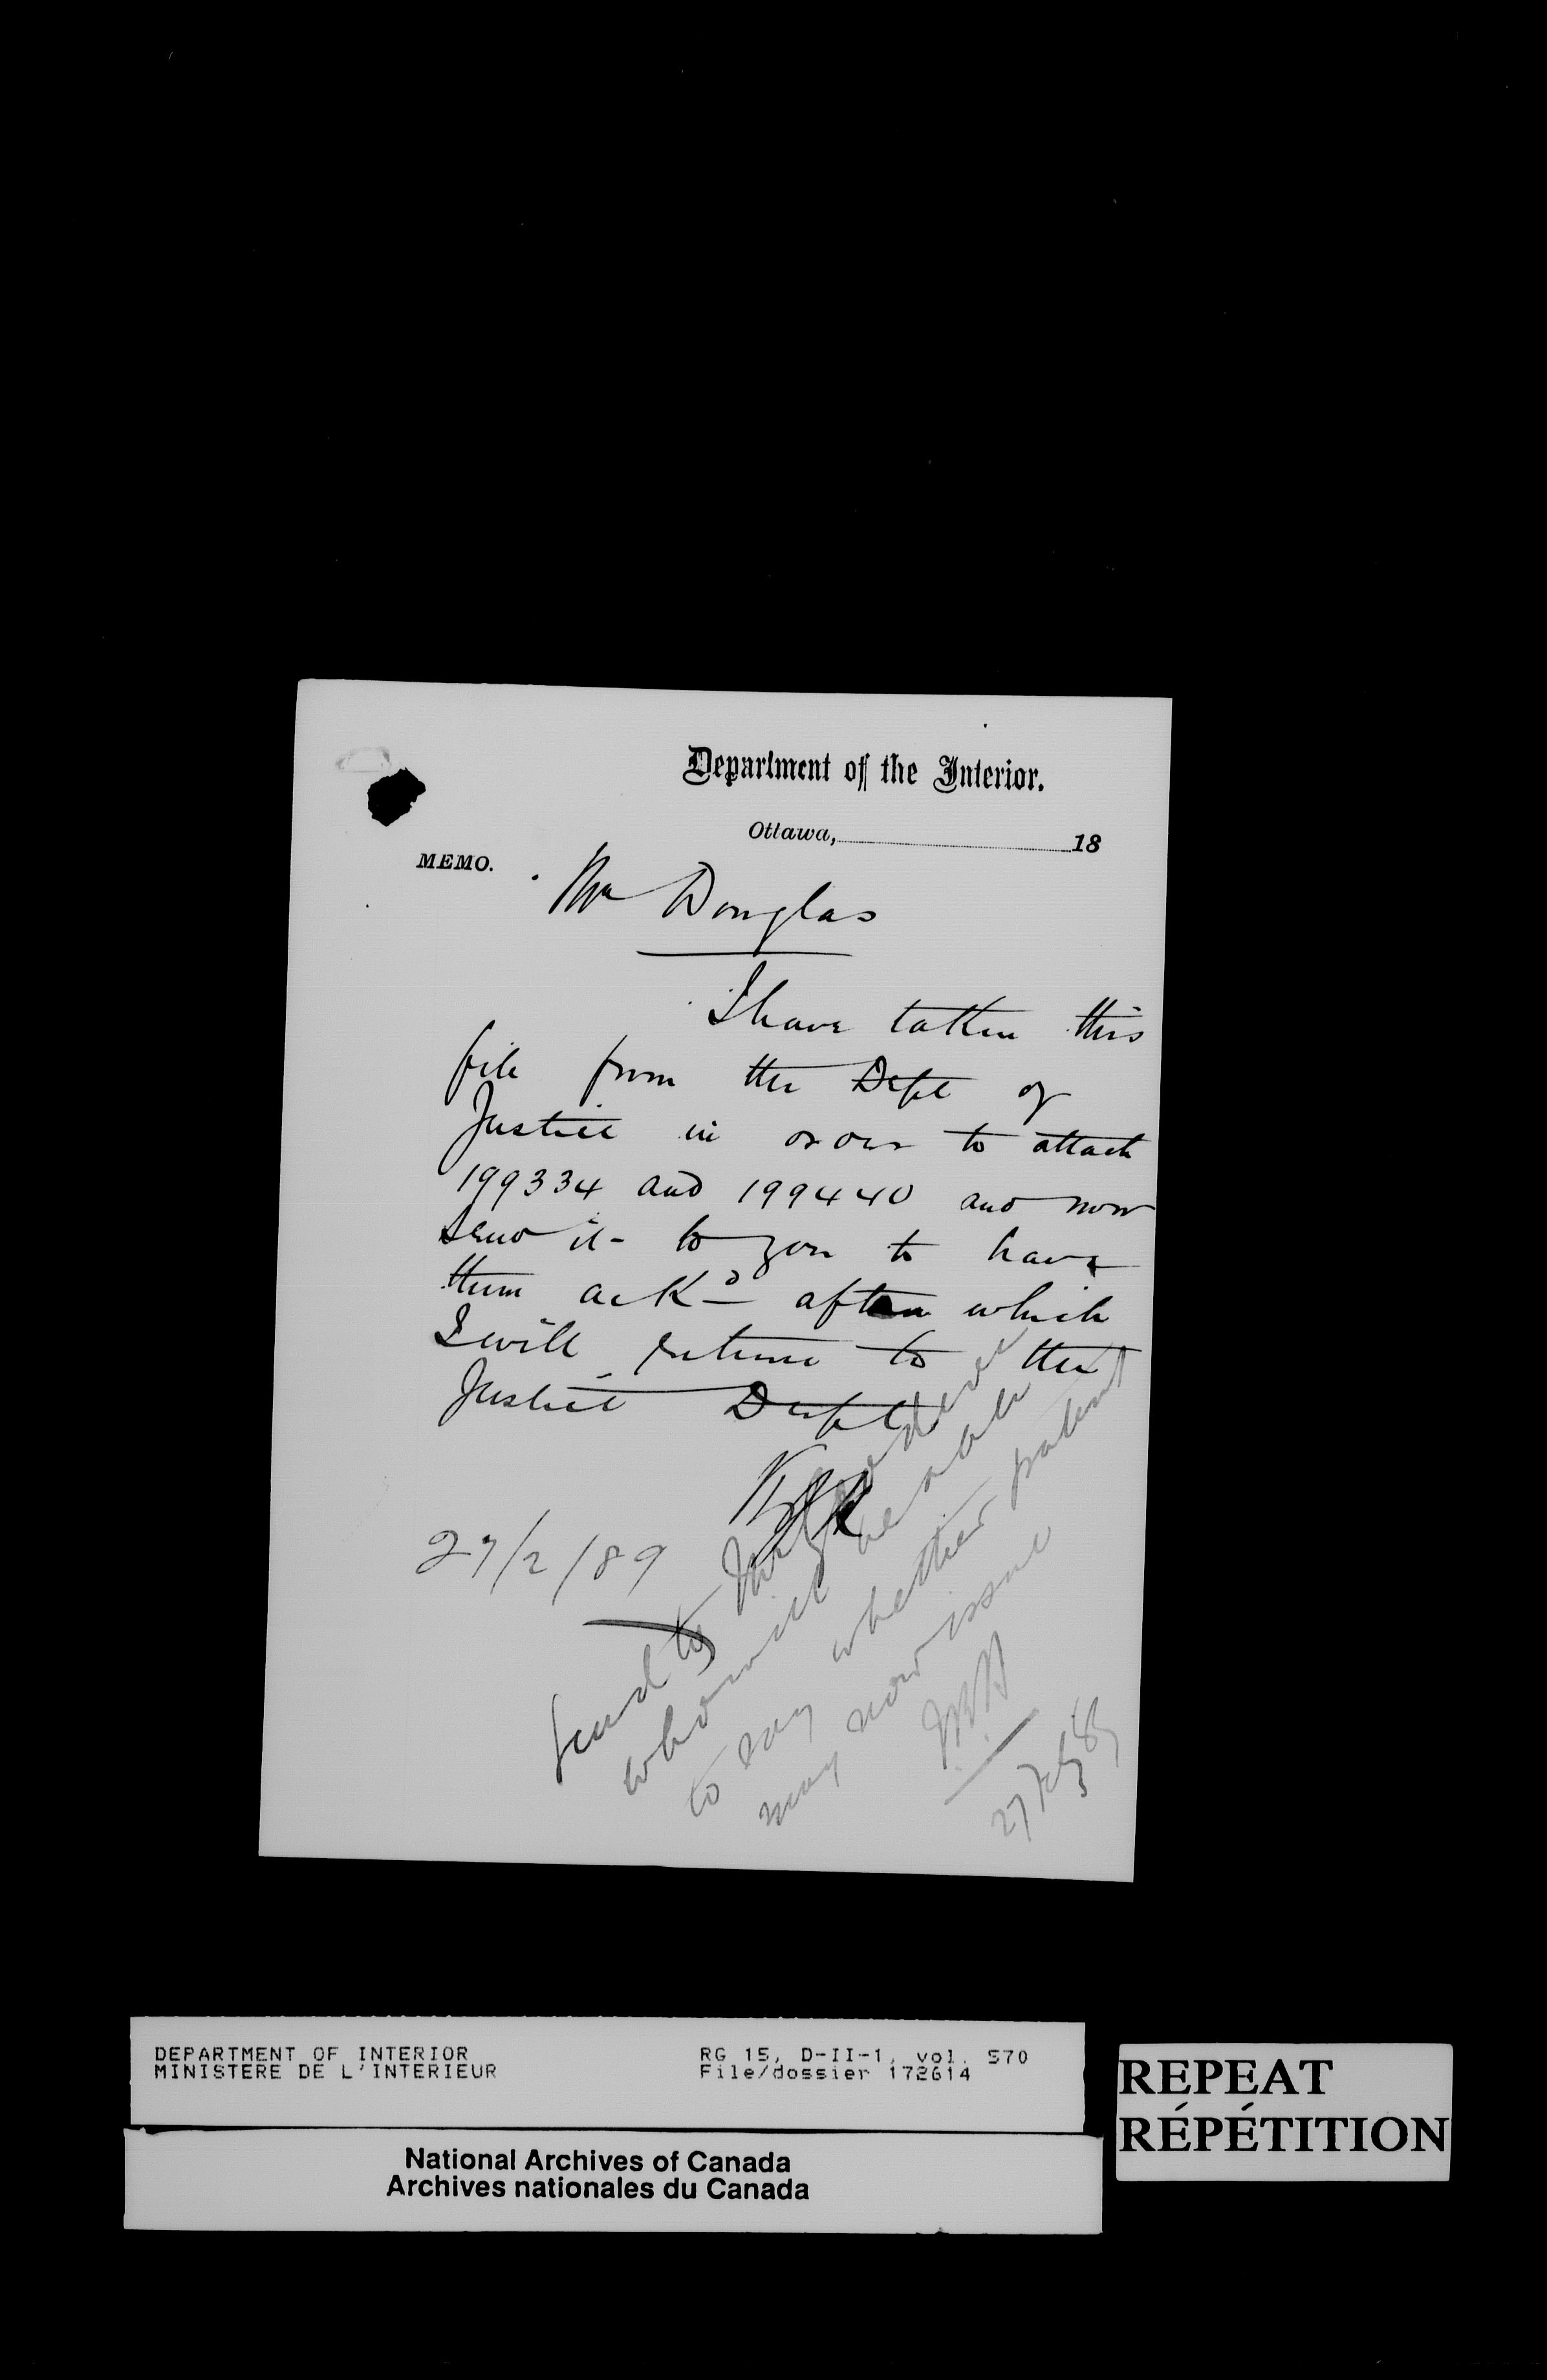 Department of the Interior.
Ottawa, 18
MEMO.
Mr Douglas
I have taken this
file from the Dept of
Justice in order to attach
199334 and 199440 and now
send it to you to have
them ackd after which
I will return to the
Justice Dept
27/2/89
Send to Mr
who will be able
to say whether patent
may now issue
27 Feby 89
DEPARTMENT OF INTERIOR
MINISTERE DE L'INTERIEUR
RG 15, D-II-1, vol. 570
File/dossier 172614
REPEAT
RÉPÉTITION
National Archives of Canada
Archives nationales du Canada